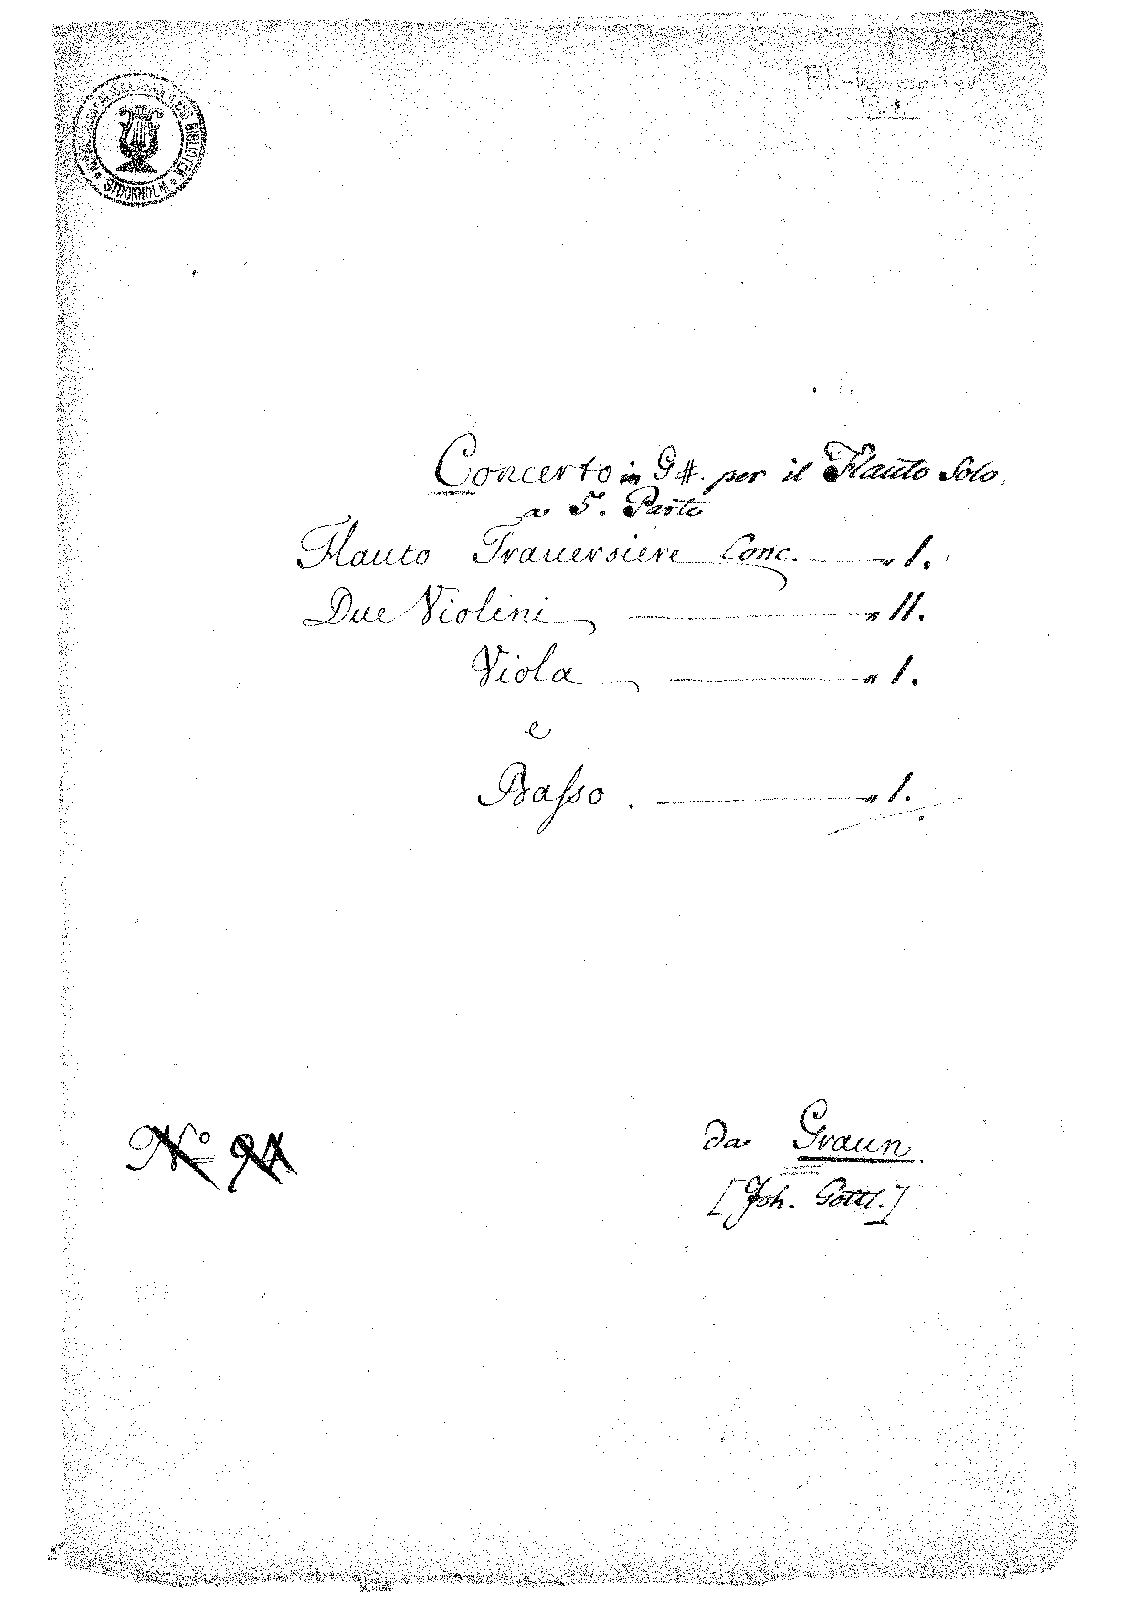 STOCKHOLM
Concerto in G#. per il Flauto Solo.
a 5. Parte
Flauto Traversiere Conc. — „ 1.
Due Violini — „ 11.
Viola — „ 1.
e
Basso. — „ 1.
No
da Graun.
[Joh. Gottl.]